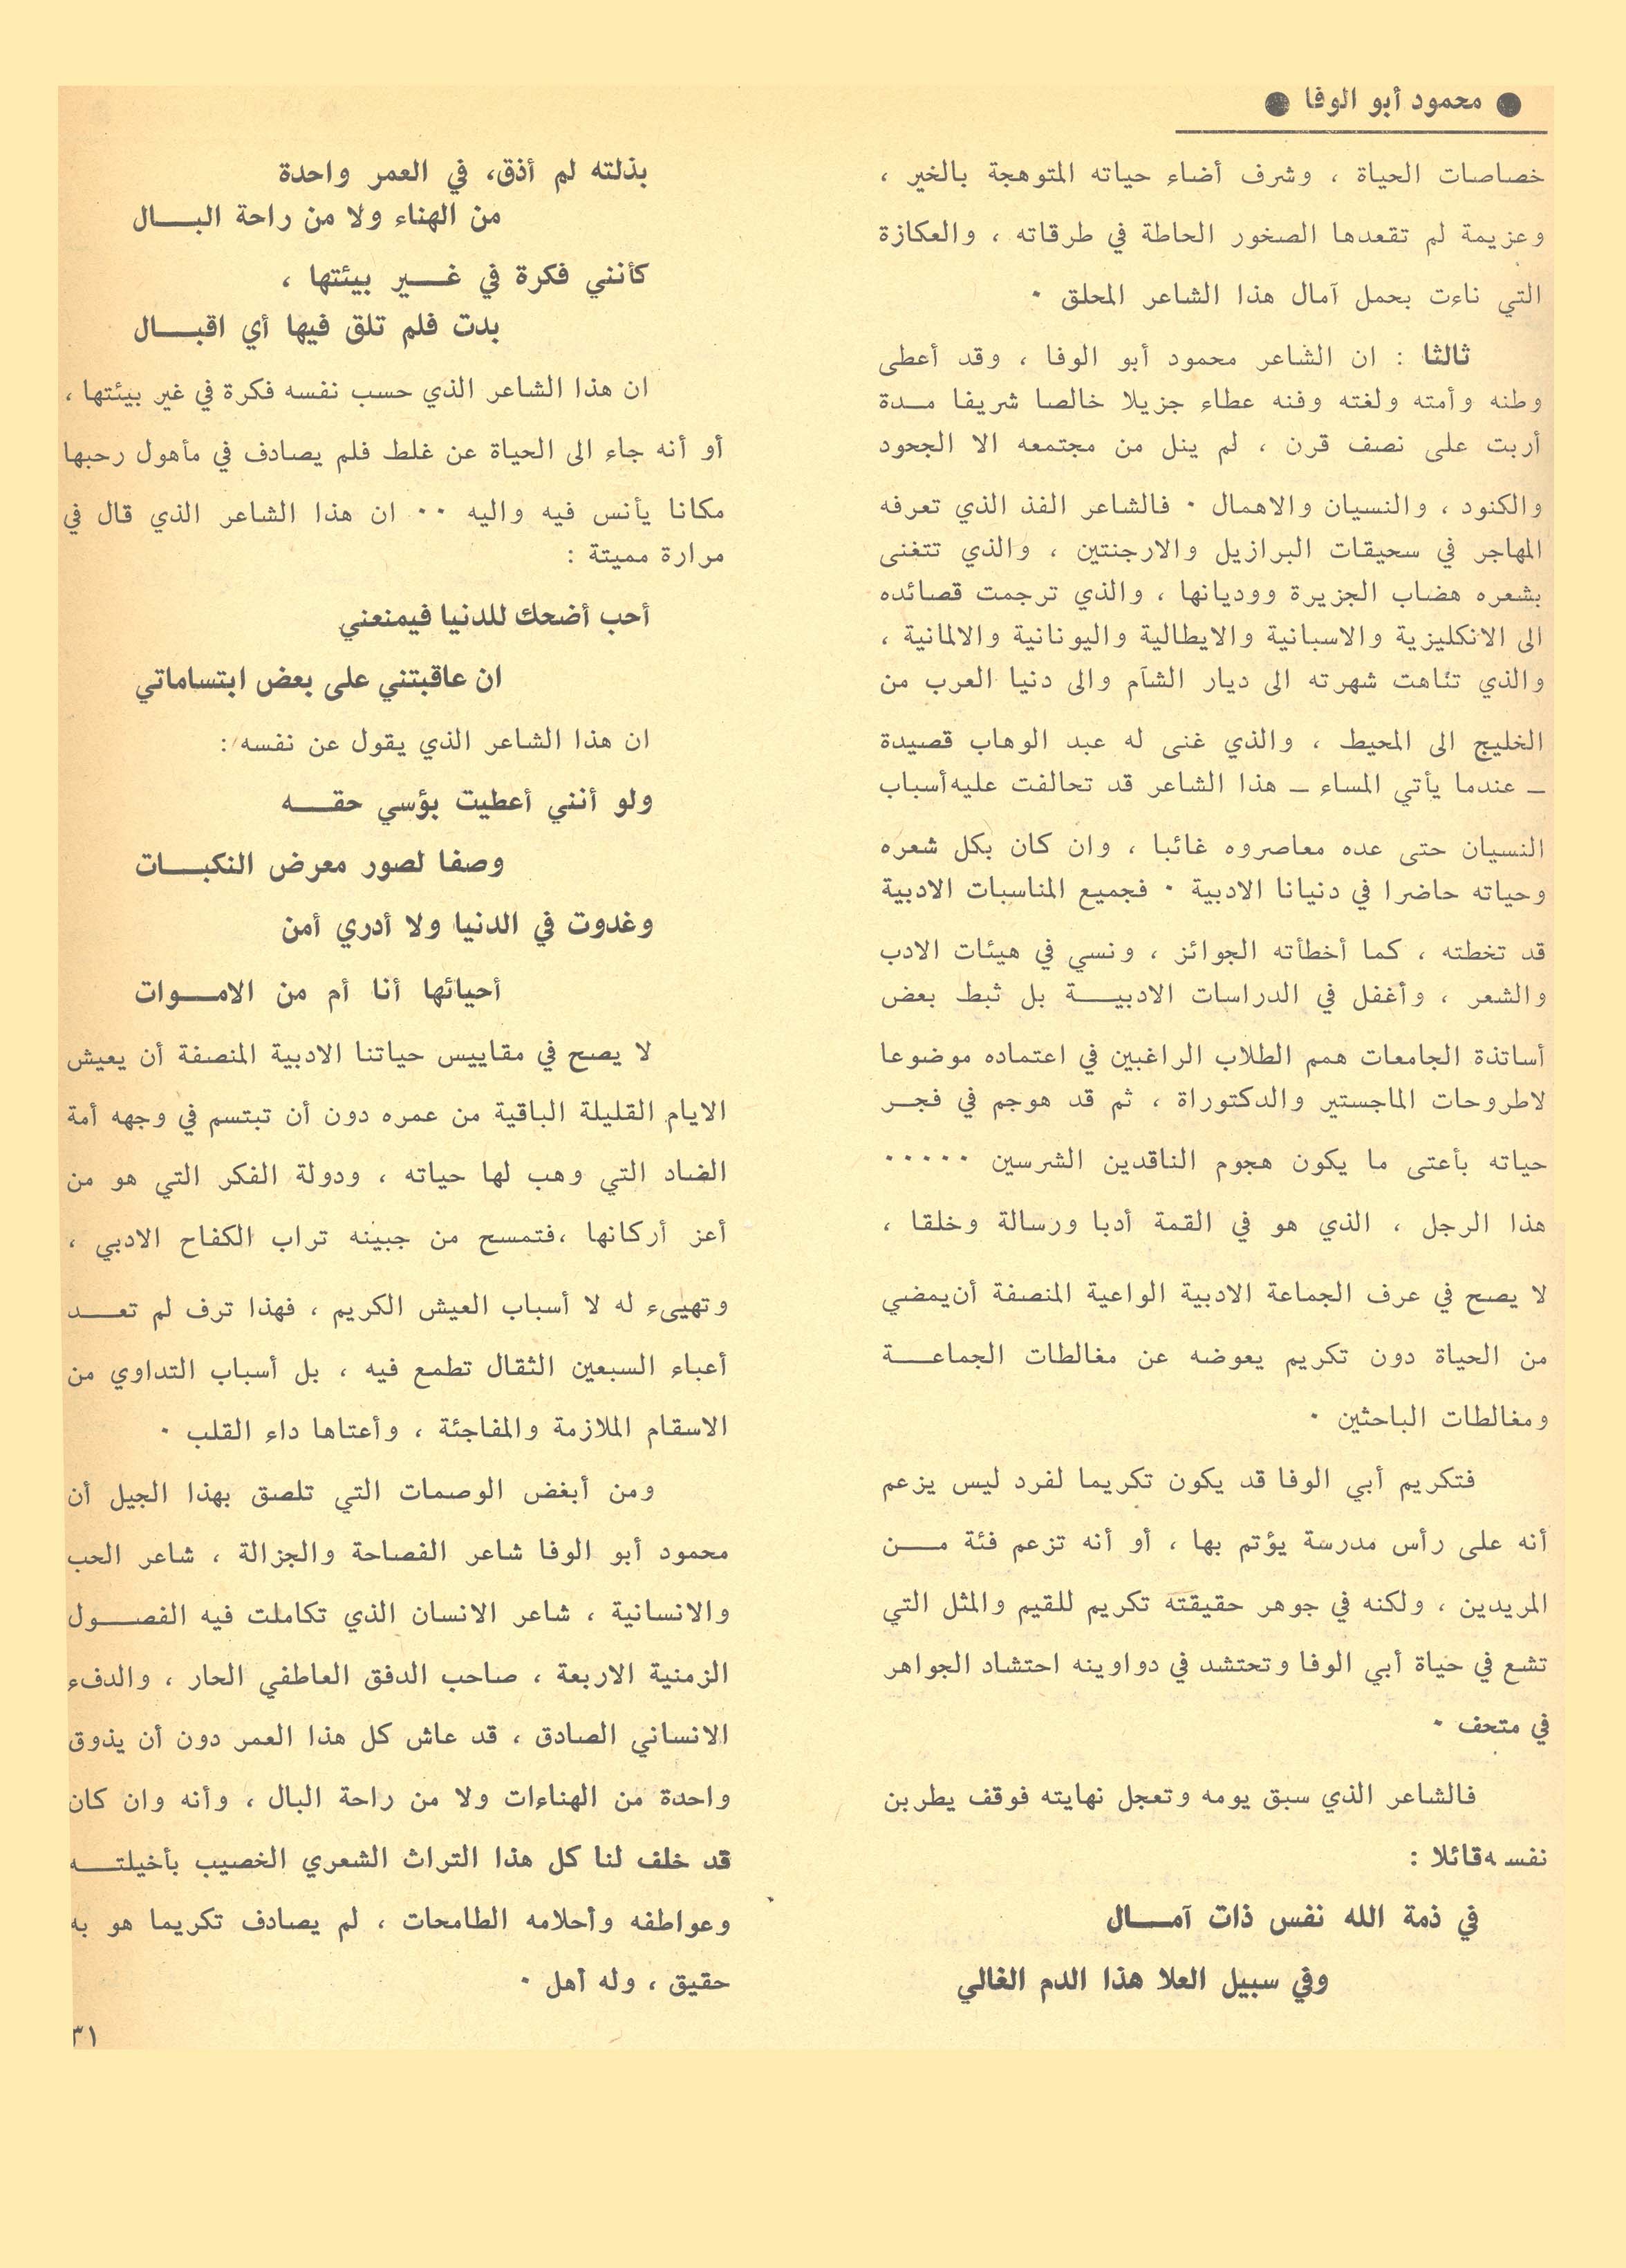 ● محمود أبو الوفا ●
خصاصات الحياة ، وشرف أضاء حياته المتوهجة بالخير ،
وعزيمة لم تقعدها الصخور الحاطة في طرقاته ، والعكازة
التي ناءت بحمل آمال هذا الشاعر المحلق ٠
ثالثا : ان الشاعر محمود أبو الوفا ، وقد أعطى
وطنه وأمته ولغته وفنه عطاء جزيلا خالصا شريفا مـدة
أربت على نصف قرن ، لم ينل من مجتمعه الا الجحود
والكنود ، والنسيان والاهمال ٠ فالشاعر الفذ الذي تعرفه
المهاجر في سحيقات البرازيل والارجنتين ، والذي تتغنى
بشعره هضاب الجزيرة ووديانها ، والذي ترجمت قصائده
الى الانكليزية والاسبانية والايطالية واليونانية والالمانية ،
والذي تناهت شهرته الى ديار الشآم والى دنيا العرب من
الخليج الى المحيط ، والذي غنى له عبد الوهاب قصيدة
ـ عندما يأتي المساء ـ هذا الشاعر قد تحالفت عليه أسباب
النسيان حتى عده معاصروه غائبا ، وان كان بكل شعره
وحياته حاضرا في دنيانا الادبية ٠ فجميع المناسبات الادبية
قد تخطته ، كما أخطأته الجوائز ، ونسي في هيئات الادب
والشعر ، وأغفل في الدراسات الادبيـــة بل ثبط بعض
أساتذة الجامعات همم الطلاب الراغبين في اعتماده موضوعا
لاطروحات الماجستير والدكتوراة ، ثم قد هوجم في فجـر
حياته بأعتى ما يكون هجوم الناقدين الشرسين ٠٠٠٠٠
هذا الرجل ، الذي هو في القمة أدبا ورسالة وخلقا ،
لا يصح في عرف الجماعة الادبية الواعية المنصفة أن يمضي
من الحياة دون تكريم يعوضه عن مغالطات الجماعـــة
ومغالطات الباحثين ٠
فتكريم أبي الوفا قد يكون تكريما لفرد ليس يزعم
أنه على رأس مدرسة يؤتم بها ، أو أنه تزعم فئة مـــن
المريدين ، ولكنه في جوهر حقيقته تكريم للقيم والمثل التي
تشع في حياة أبي الوفا وتحتشد في دواوينه احتشاد الجواهر
في متحف ٠
فالشاعر الذي سبق يومه وتعجل نهايته فوقف يطربن
نفسه قائلا :
في ذمة الله نفس ذات آمـــال
وفي سبيل العلا هذا الدم الغالي
بذلته لم أذق، في العمر واحدة
من الهناء ولا من راحة البـــال
كأنني فكرة في غـــير بيئتها ،
بدت فلم تلق فيها أي اقبـــال
ان هذا الشاعر الذي حسب نفسه فكرة في غير بيئتها ،
أو أنه جاء الى الحياة عن غلط فلم يصادف في مأهول رحبها
مكانا يأنس فيه واليه ٠٠ ان هذا الشاعر الذي قال في
مرارة مميتة :
أحب أضحك للدنيا فيمنعني
ان عاقبتني على بعض ابتساماتي
ان هذا الشاعر الذي يقول عن نفسه :
ولو أنني أعطيت بؤسي حقـــه
وصفا لصور معرض النكبـــات
وغدوت في الدنيا ولا أدري أمن
أحيائها أنا أم من الامـــوات
لا يصح في مقاييس حياتنا الادبية المنصفة أن يعيش
الايام القليلة الباقية من عمره دون أن تبتسم في وجهه أمة
الضاد التي وهب لها حياته ، ودولة الفكر التي هو من
أعز أركانها ،فتمسح من جبينه تراب الكفاح الادبي ،
وتهيىء له لا أسباب العيش الكريم ، فهذا ترف لم تعـــد
أعباء السبعين الثقال تطمع فيه ، بل أسباب التداوي من
الاسقام الملازمة والمفاجئة ، وأعتاها داء القلب ٠
ومن أبغض الوصمات التي تلصق بهذا الجيل أن
محمود أبو الوفا شاعر الفصاحة والجزالة ، شاعر الحب
والانسانية ، شاعر الانسان الذي تكاملت فيه الفصـــول
الزمنية الاربعة ، صاحب الدفق العاطفي الحار ، والدفء
الانساني الصادق ، قد عاش كل هذا العمر دون أن يذوق
واحدة من الهناءات ولا من راحة البال ، وأنه وان كان
قد خلف لنا كل هذا التراث الشعري الخصيب بأخيلتـــه
وعواطفه وأحلامه الطامحات ، لم يصادف تكريما هو به
حقيق ، وله أهل ٠
٣١